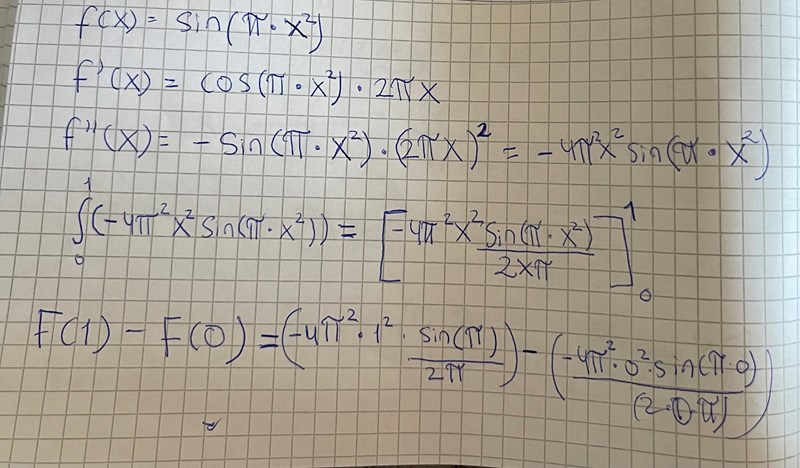 f(x) = sin(π · x²)
f'(x) = cos(π · x²) · 2πx
f''(x) = -sin(π · x²) · (2πx)² = -4π²x² sin(π · x²)
∫₀¹(-4π²x² sin(π · x²)) = [-4π²x² sin(π · x²) / 2xπ]₀¹
F(1) - F(0) = (-4π² · 1² · sin(π) / 2π) - (-4π² · 0² · sin(π · 0) / (2 · 0 · π))